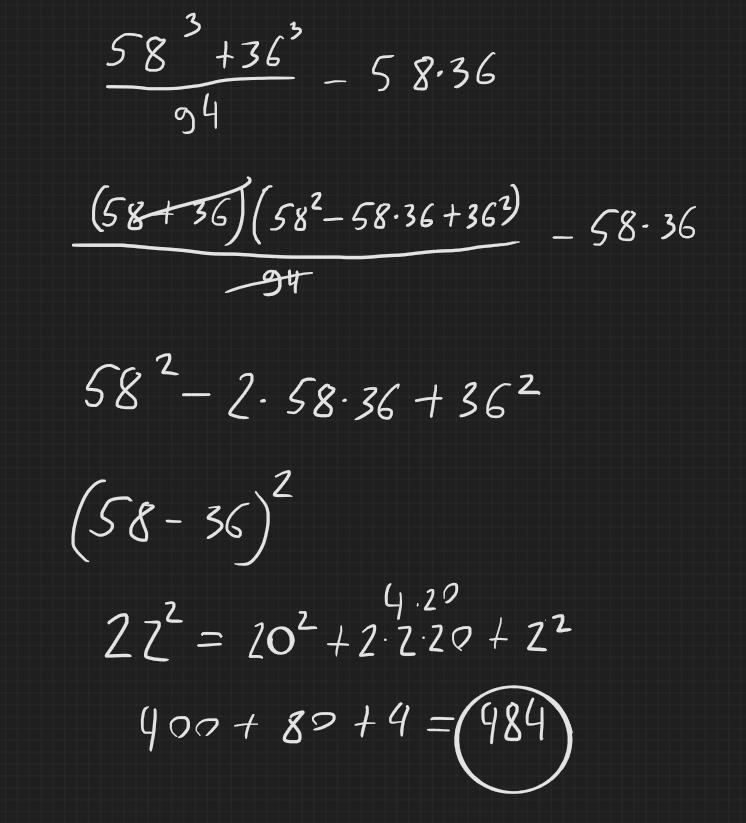 58³ + 36³ / 94 - 58·36
(58 + 36)(58² - 58·36 + 36²) / 94 - 58·36
58² - 2·58·36 + 36²
(58 - 36)²
4·20
22² = 20² + 2·2·20 + 2²
400 + 80 + 4 = 484